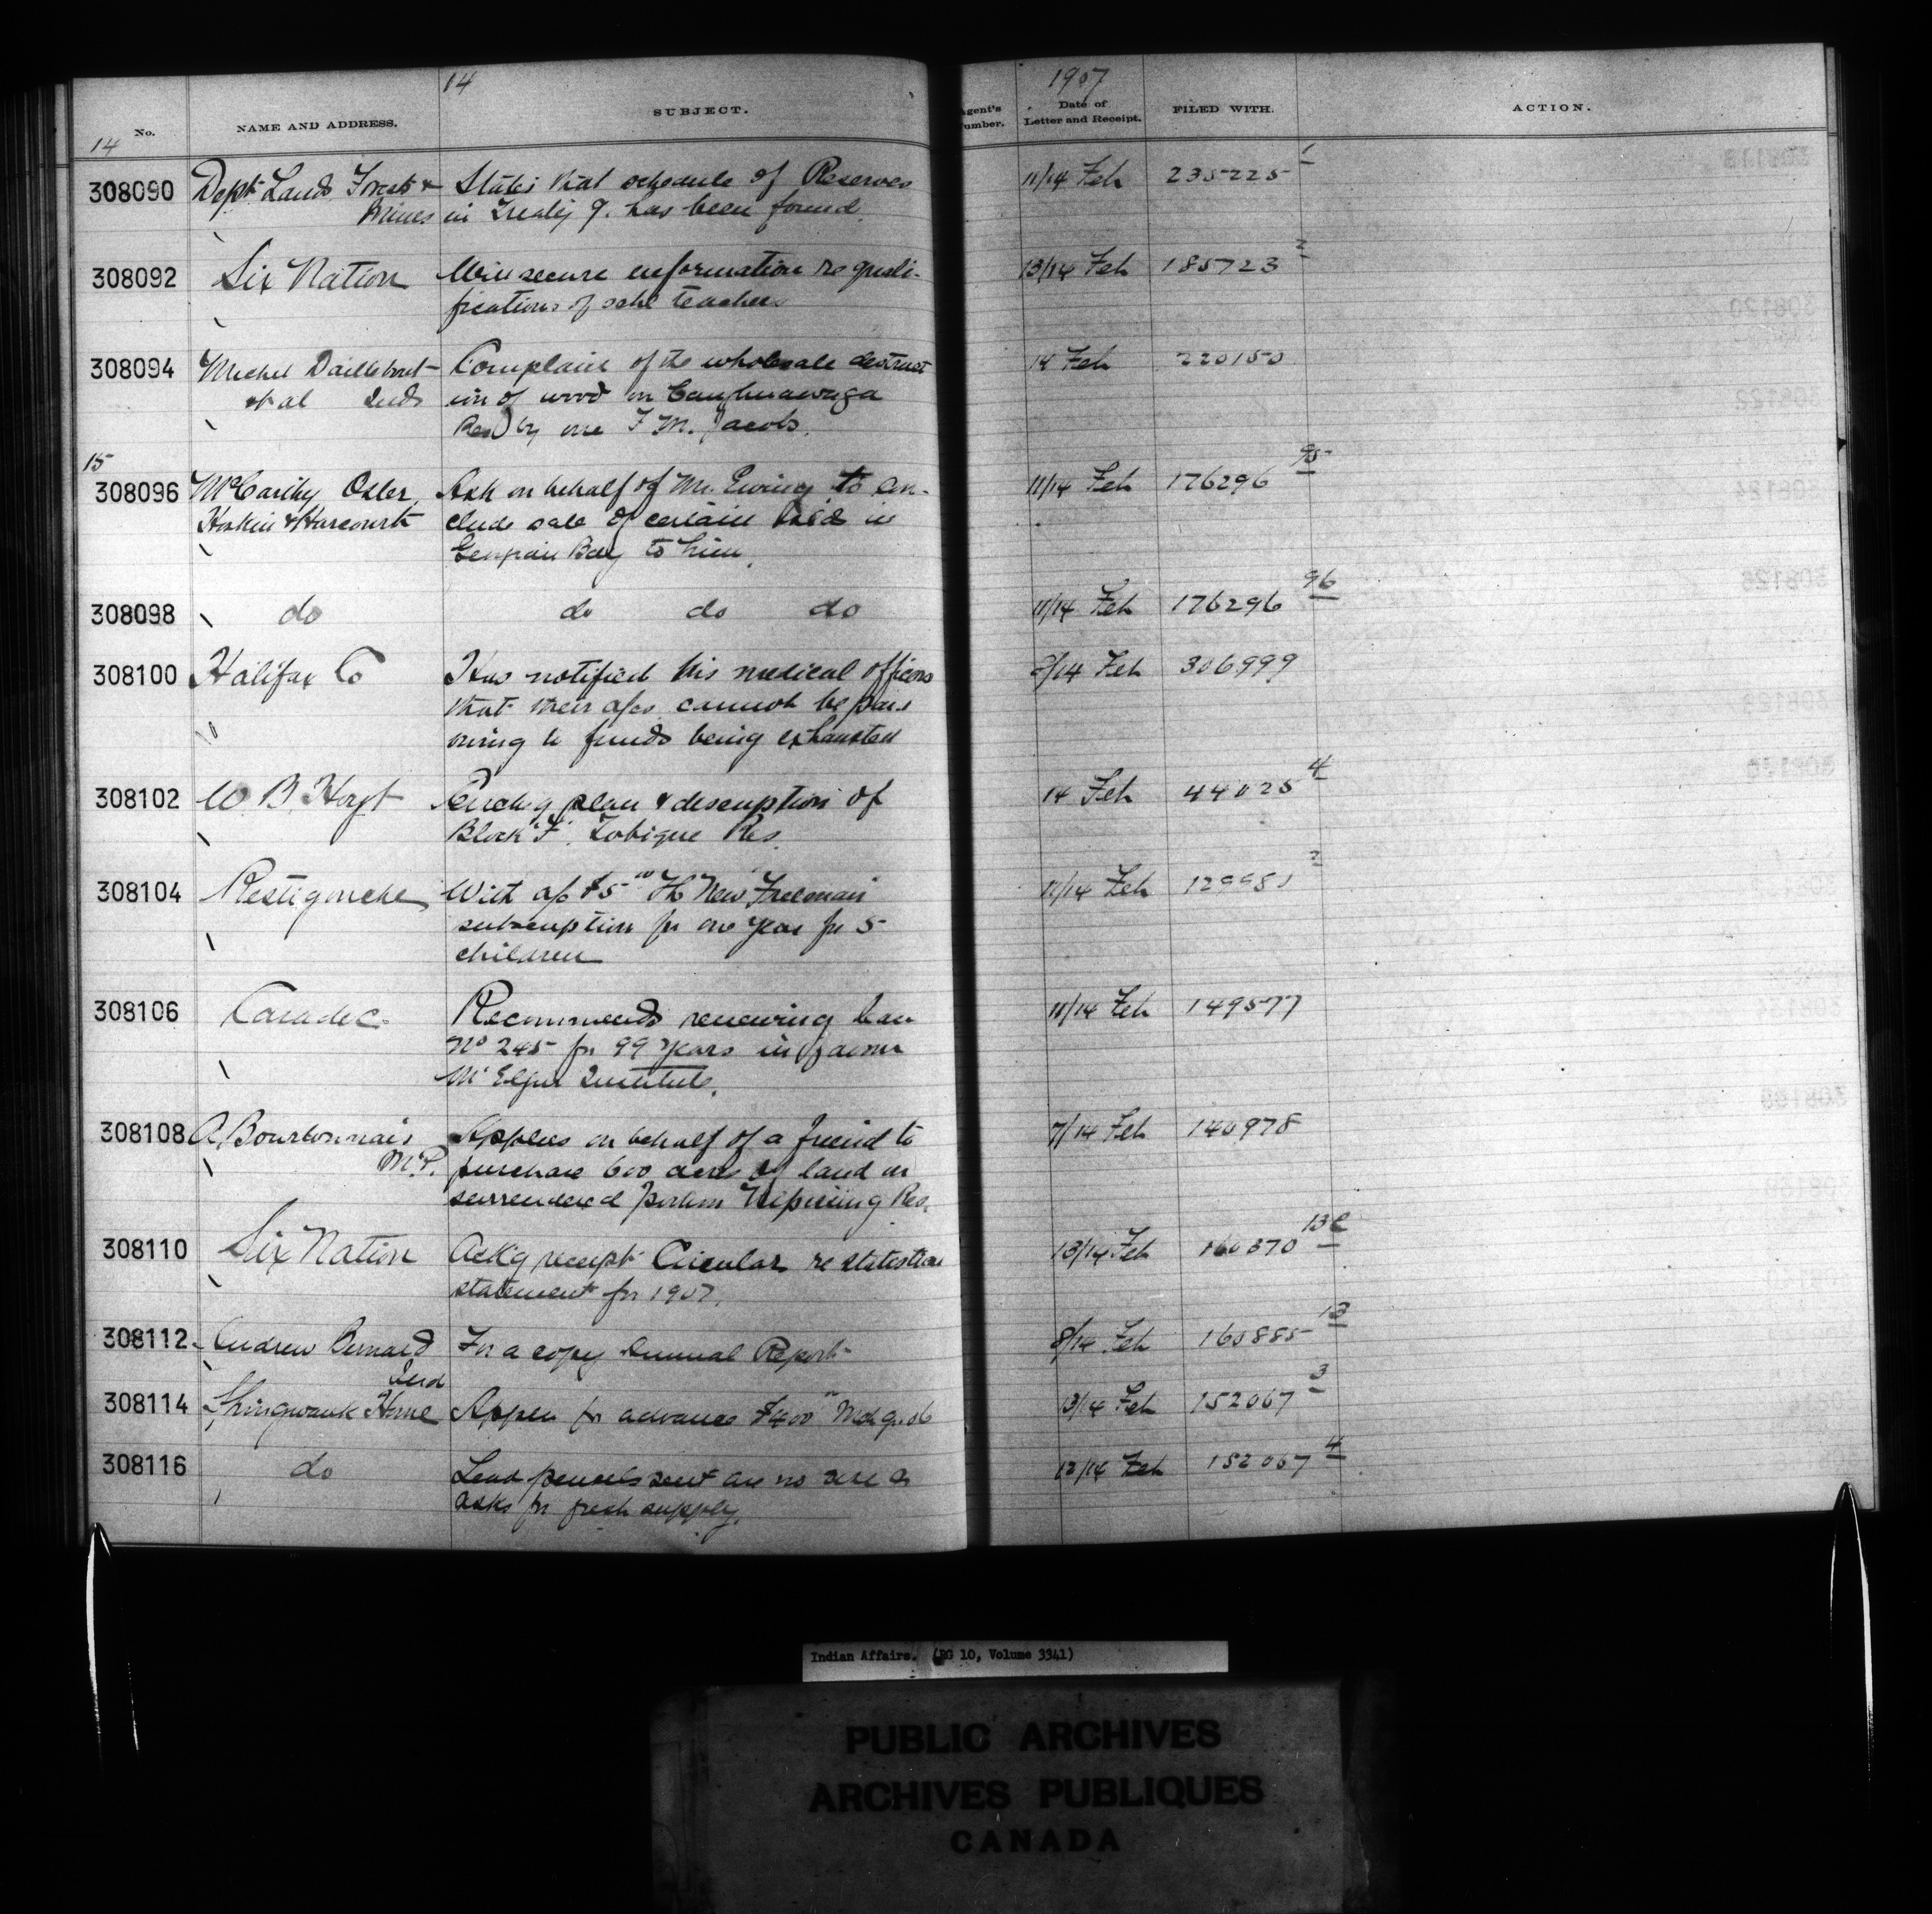 14
1907
No. NAME AND ADDRESS. SUBJECT. Agent's Number. Date of Letter and Receipt. FILED WITH. ACTION.
14
308090 Dept Lands Forests & States that schedule of Reserves 11/14 Feb 235225 1
Mines in Treaty 9. has been found.
308092 Six Nation Will secure information re quali- 13/14 Feb 185723 2
fications of schl teachers
308094 Michel Daillebout Complain of the wholesale destruct 14 Feb 220150
et al Inds ion of wood on Caughnawaga
Res by one F M. Jacobs.
15
308096 McCarthy Osler, Ask on behalf of Mr. Ewing to con- 11/14 Feb 176296 95
Hoskin & Harcourt clude sale of certain Isld in
Georgian Bay to him.
308098 do do do do 11/14 Feb 176296 96
308100 Halifax Co Has notified his medical officers 8/14 Feb 306999
that their a/cs cannot be paid
owing to funds being exhausted
308102 W B Hoyt Encl'g plan & description of 14 Feb 44025 4
Block "F". Tobique Res.
308104 Restigouche With a/c $5 00 The New Freeman 11/14 Feb 2
subscription for one year for 5
children
308106 Caradoc Recommends renewing loan 11/14 Feb 149577
No 245 for 99 years in favour
Mt Elgin Institute.
308108 A. Bourbonnais Applies on behalf of a friend to 7/14 Feb 140978
M.P. purchase 600 acres of land in
surrendered portion Nipissing Res.
308110 Six Nation Ack'g receipt Circular re statistical 13/14 Feb 160370 13C
statement for 1907.
308112 Andrew Bernard For a copy Annual Report 8/14 Feb 160885 13
Ind
308114 Shingwauk Home Applies for advance $400 00 Mch qr. 06 13/14 Feb 152067 3
308116 do Lead pencils sent are no use & 12/14 Feb 152067 4
asks for fresh supply.
Indian Affairs. (RG 10, Volume 3341)
PUBLIC ARCHIVES
ARCHIVES PUBLIQUES
CANADA